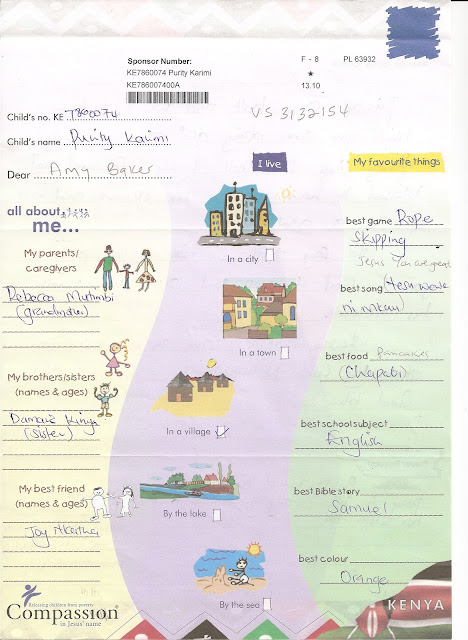 Sponsor Number:
KE7860074 Purity Karimi
KE786007400A
F - 8 PL 63932
13.10
Child's no. KE 7860074
VS 3132154
Child's name Purity Karimi
Dear Amy Baker
I live
My favourite things
all about
me...
In a city
best game Rope
Skipping
Jesus You are great
My parents/
caregivers
Rebecca
(grandmother)
best song
In a town
best food Pancakes
(Chapati)
My brothers/sisters
(names & ages)
(sister)
In a village
best school subject
English
My best friend
(names & ages)
Joy
By the lake
best Bible story
Samuel
best colour
Orange
By the sea
Releasing children from poverty
Compassion®
in Jesus' name
KENYA